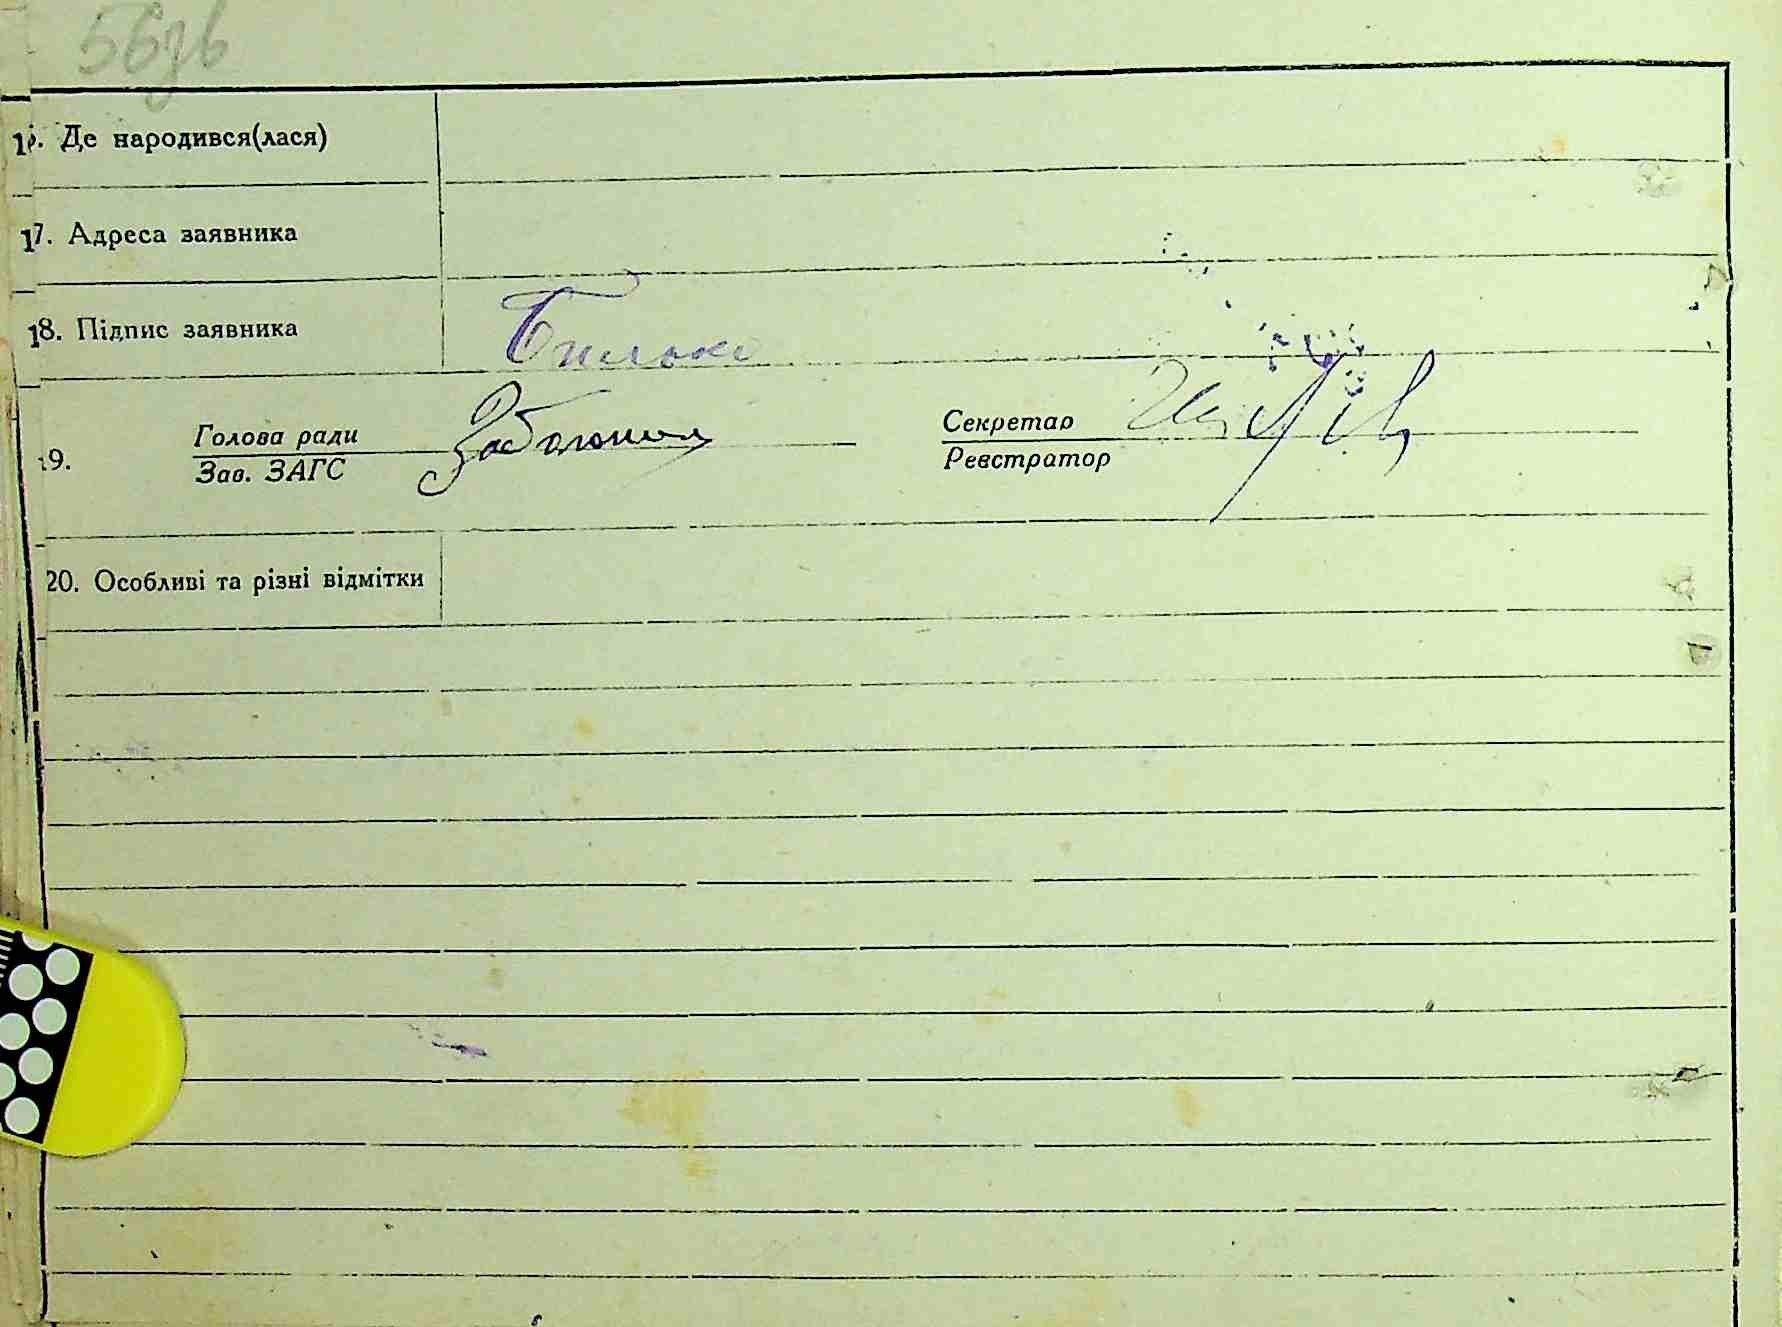 56зв
16. Де народився(лася)
17. Адреса заявника
18. Підпис заявника
19. Голова ради Секретар
Зав. ЗАГС Реєстратор
20. Особливі та різні відмітки